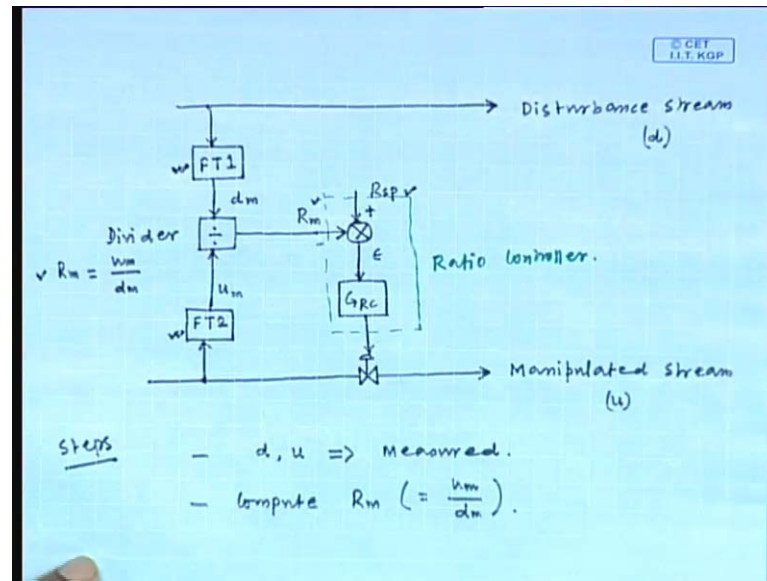 © CET
I.I.T. KGP
Disturbance stream
(d)
FT1
dm
Rsp
+
Rm
Divider
÷
ϵ
Ratio Controller.
Rm = um/dm
um
GRC
FT2
Manipulated stream
(u)
Steps
- d, u => Measured.
- Compute Rm (= um/dm).